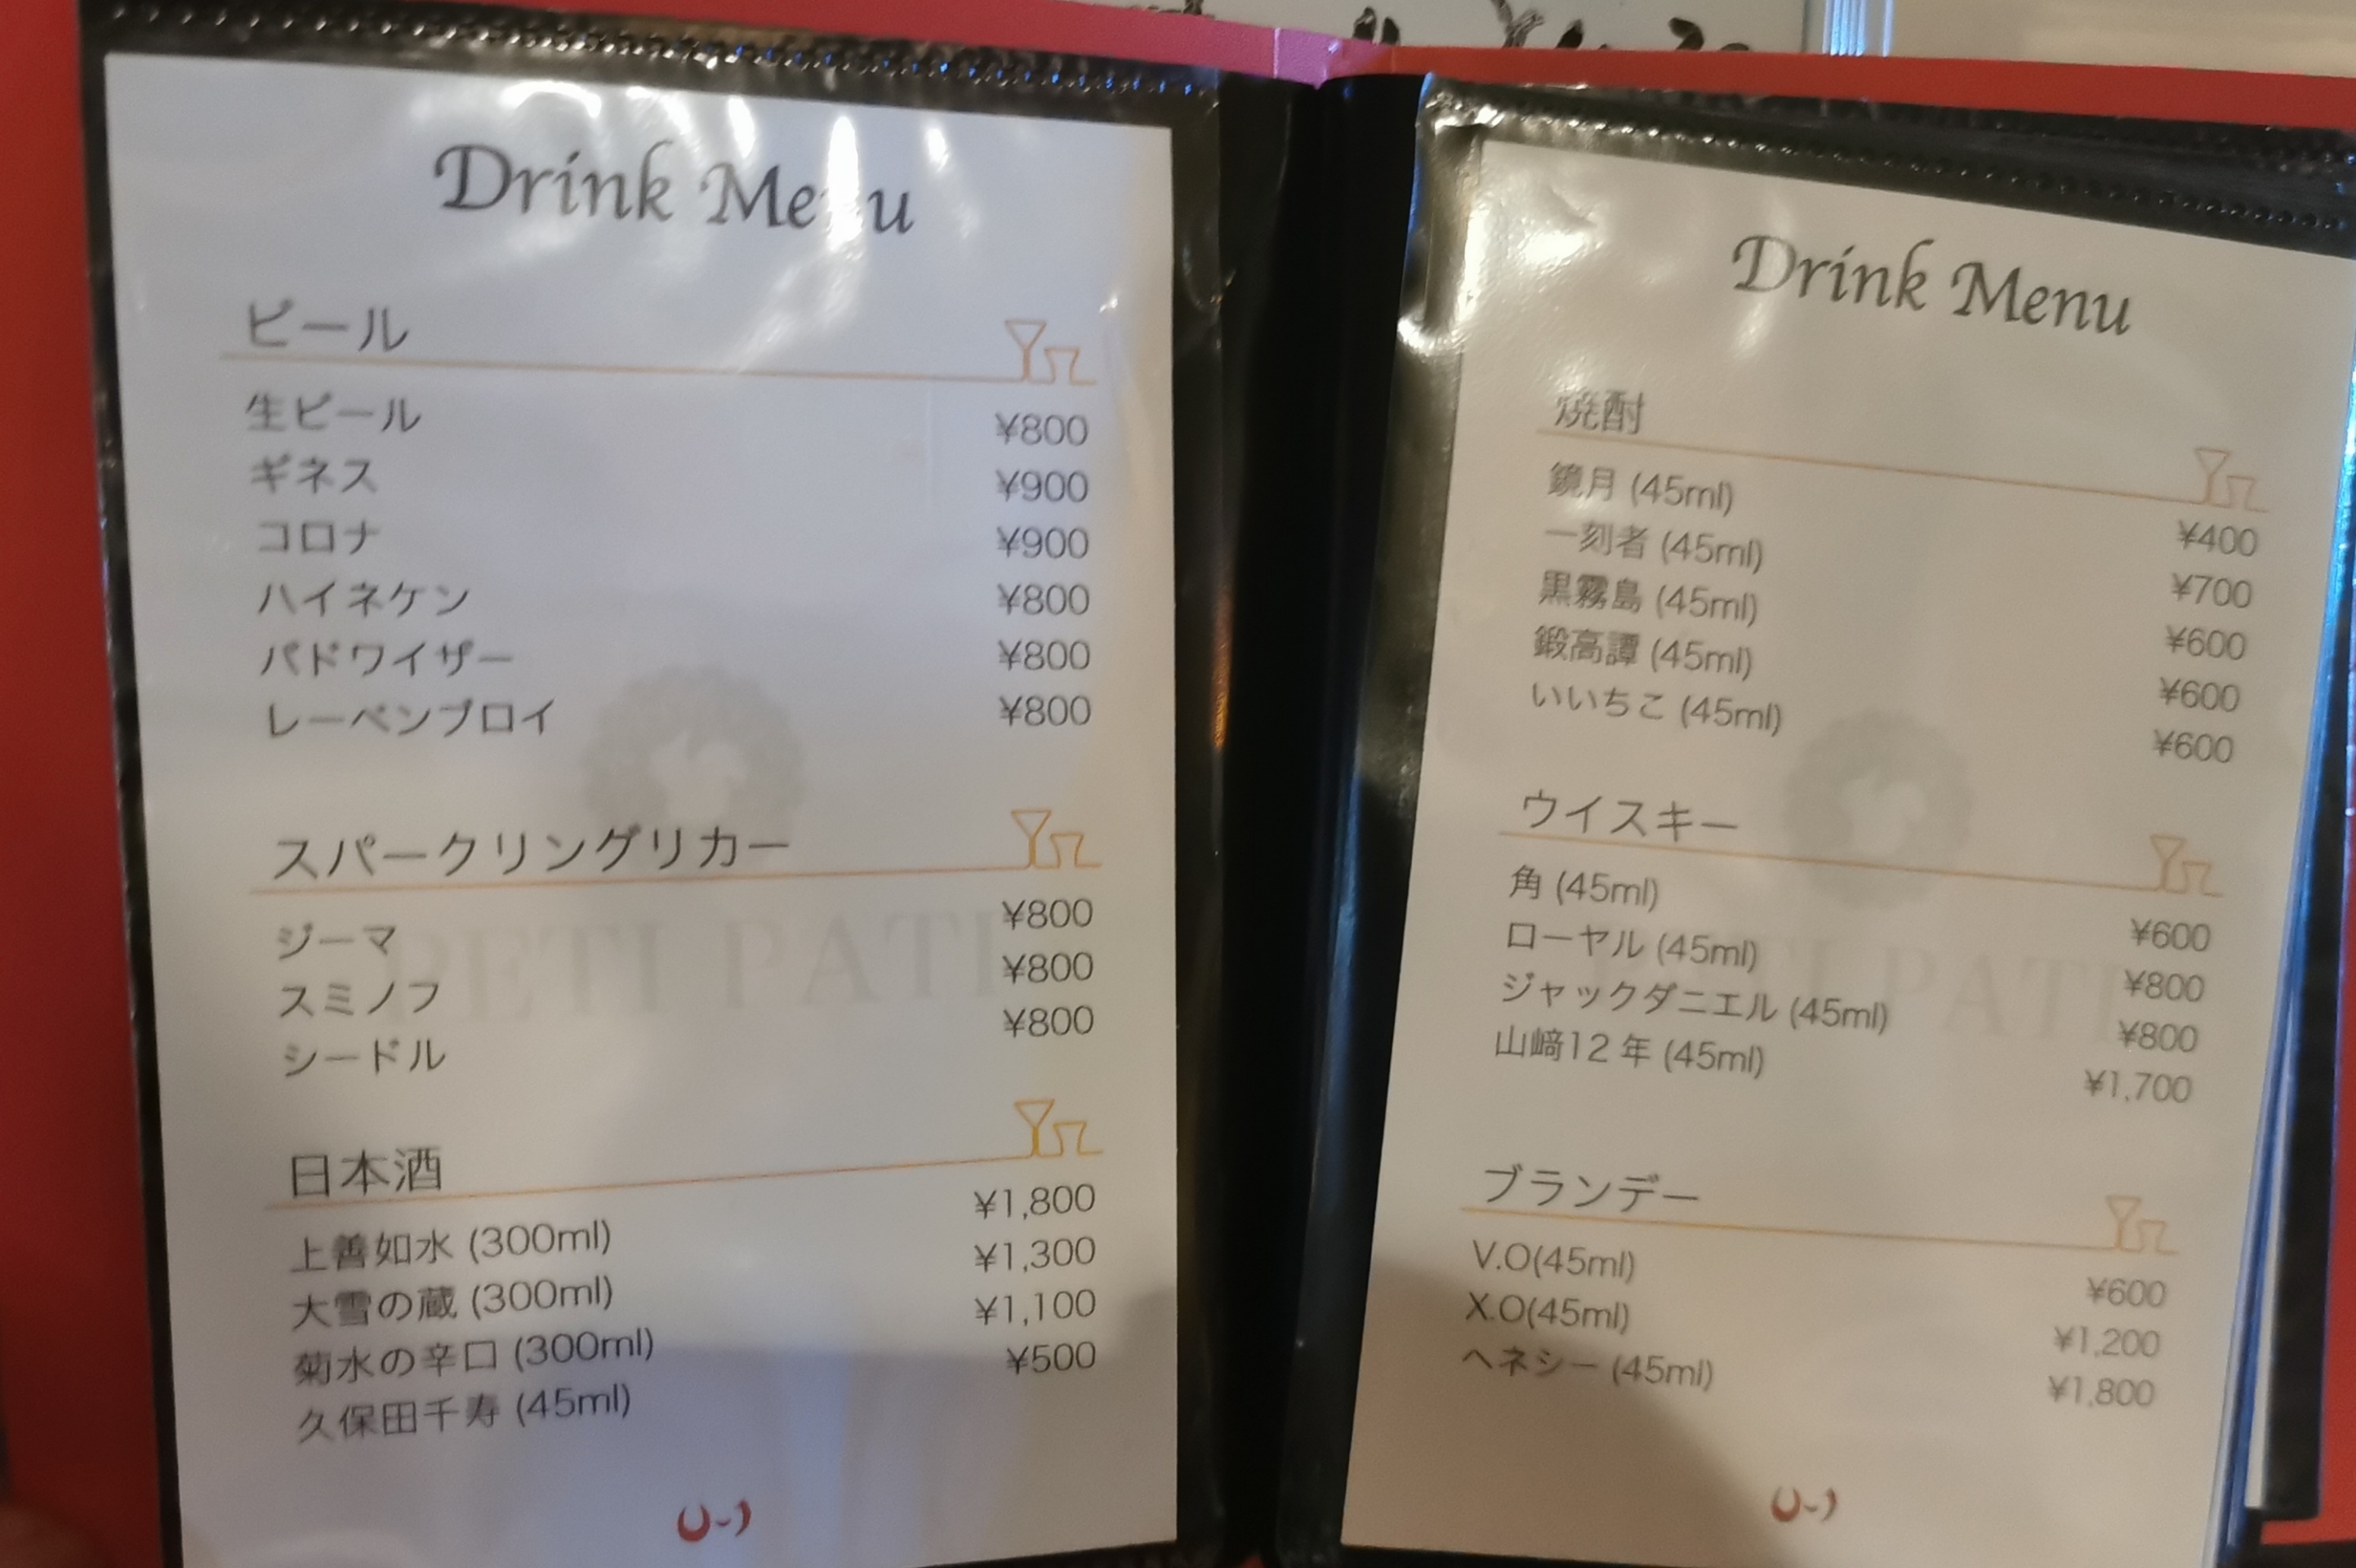 Drink Menu
ビール
生ビール ¥800
ギネス ¥900
コロナ ¥900
ハイネケン ¥800
バドワイザー ¥800
レーベンブロイ ¥800
スパークリングリカー
ジーマ ¥800
スミノフ ¥800
シードル ¥800
日本酒
上善如水 (300ml) ¥1,800
大雪の蔵 (300ml) ¥1,300
菊水の辛口 (300ml) ¥1,100
久保田千寿 (45ml) ¥500
PETI PATI
Drink Menu
焼酎
鏡月 (45ml) ¥400
一刻者 (45ml) ¥700
黒霧島 (45ml) ¥600
鍛高譚 (45ml) ¥600
いいちこ (45ml) ¥600
ウイスキー
角 (45ml) ¥600
ローヤル (45ml) ¥800
ジャックダニエル (45ml) ¥800
山﨑12年 (45ml) ¥1,700
ブランデー
V.O(45ml) ¥600
X.O(45ml) ¥1,200
ヘネシー (45ml) ¥1,800